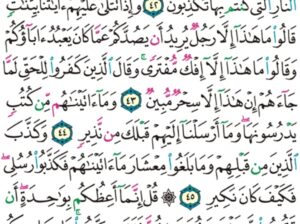 النار التي كنتم بها تكذبون ٤٢ وإذا تتلى عليهم ءايتنا بينت
قالوا ما هذا إلا رجل يريد أن يصدكم عما كان يعبد ءاباؤكم
وقالوا ما هذا إلا إفك مفترى وقال الذين كفروا للحق لما
جاءهم إن هذا إلا سحر مبين ٤٣ وما ءاتينهم من كتب
يدرسونها وما أرسلنا إليهم قبلك من نذير ٤٤ وكذب
الذين من قبلهم وما بلغوا معشار ما ءاتينهم فكذبوا رسلي
فكيف كان نكير ٤٥ ۞ قل إنما أعظكم بوحدة أن